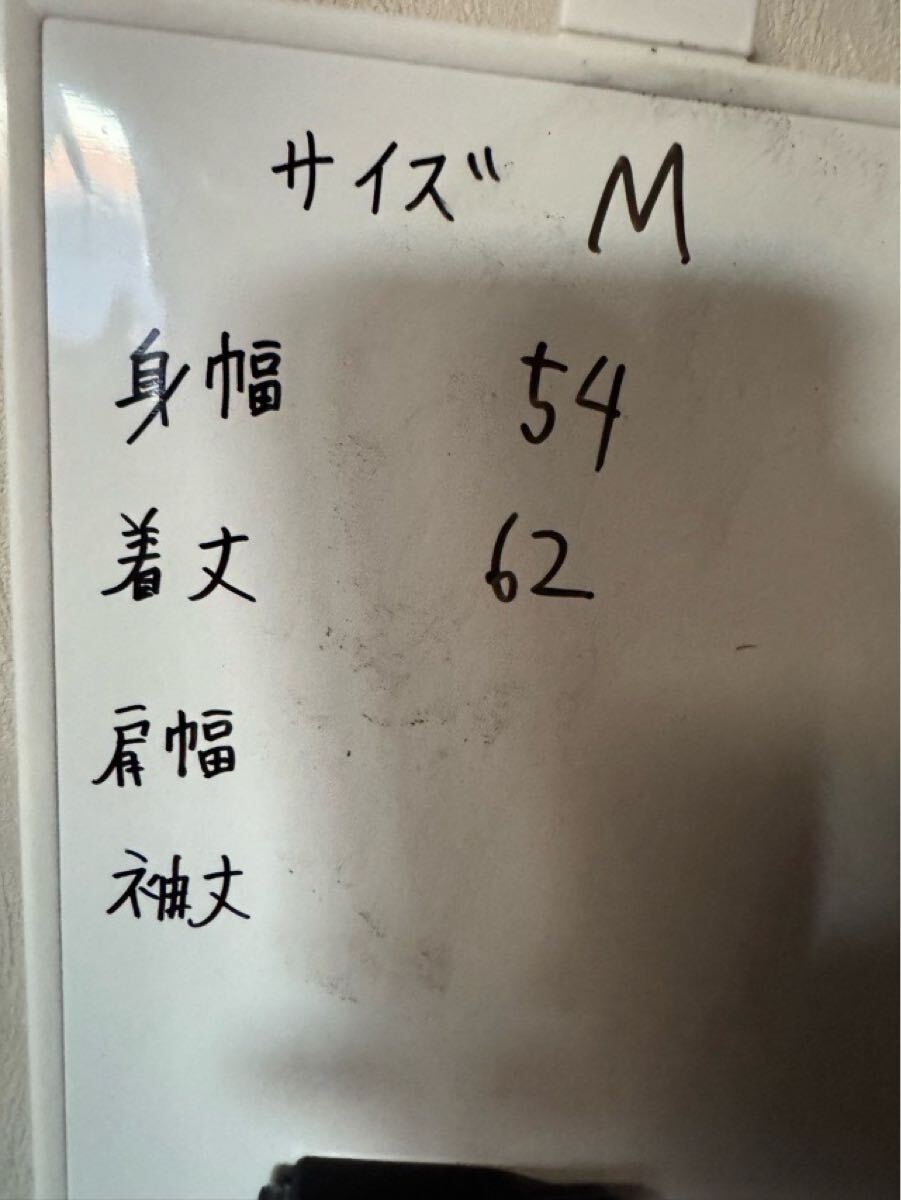 サイズ M
身幅 54
着丈 62
肩幅
袖丈